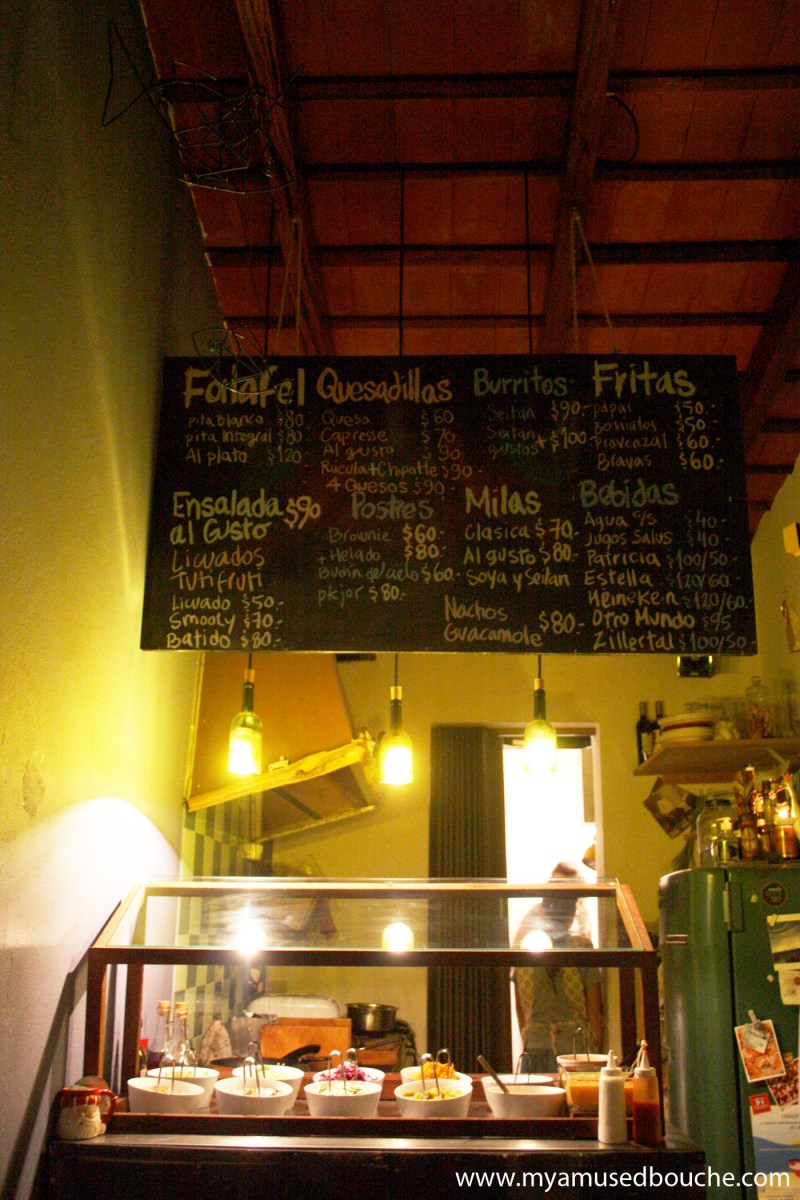 Falafel
pita blanca $80.-
pita Integral $80.-
Al plato $120.-
Quesadillas
Queso $60
Capresse $70
Al gusto $90
Rucula+Chipotle $90.-
4 Quesos $90.-
Burritos
Seitan $90.-
Seitan + gustos $100.-
Fritas
papas $50.-
Boniatos $50.-
Provenzal $60.-
Bravas $60.-
Ensalada al Gusto $90
Licuados
Tutifruti
Licuado $50.-
Smooty $70.-
Batido $80.-
Postres
Brownie $60.-
+ Helado $80.-
Budin del cielo $60.-
$80.-
Milas
Clasica $70.-
Al gusto $80.-
Soya y Seitan
Nachos
Guacamole $80.-
Bebidas
Agua c/s $40.-
Jugos Salus $40.-
Patricia $100/50.-
Estella $120/60.-
Heineken $120/60.-
Otro Mundo $95
Zillertal $100/50.-
www.myamusedbouche.com